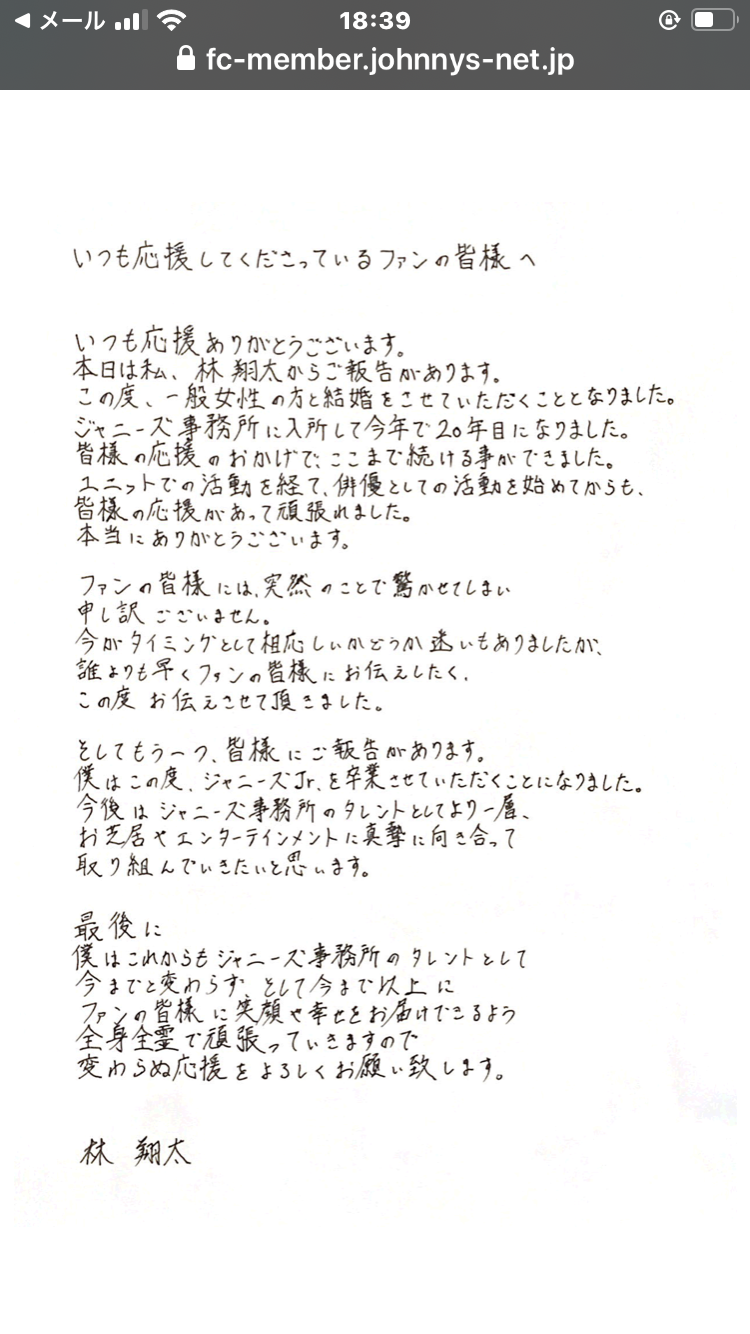 メール
18:39
fc-member.johnnys-net.jp
いつも応援してくださっているファンの皆様へ
いつも応援ありがとうございます。
本日は私、林 翔太からご報告があります。
この度、一般女性の方と結婚をさせていただくこととなりました。
ジャニーズ事務所に入所して今年で20年目になりました。
皆様の応援のおかげで、ここまで続ける事ができました。
ユニットでの活動を経て、俳優としての活動を始めてからも、
皆様の応援があって頑張れました。
本当にありがとうございます。
ファンの皆様には、突然のことで驚かせてしまい
申し訳ございません。
今がタイミングとして相応しいかどうか迷いもありましたが、
誰よりも早くファンの皆様にお伝えしたく、
この度お伝えさせて頂きました。
そしてもう一つ、皆様にご報告があります。
僕はこの度、ジャニーズJr.を卒業させていただくことになりました。
今後はジャニーズ事務所のタレントとしてより一層、
お芝居やエンターテインメントに真摯に向き合って
取り組んでいきたいと思います。
最後に
僕はこれからもジャニーズ事務所のタレントとして
今までと変わらず、そして今まで以上に
ファンの皆様に笑顔や幸せをお届けできるよう
全身全霊で頑張っていきますので
変わらぬ応援をよろしくお願い致します。
林 翔太